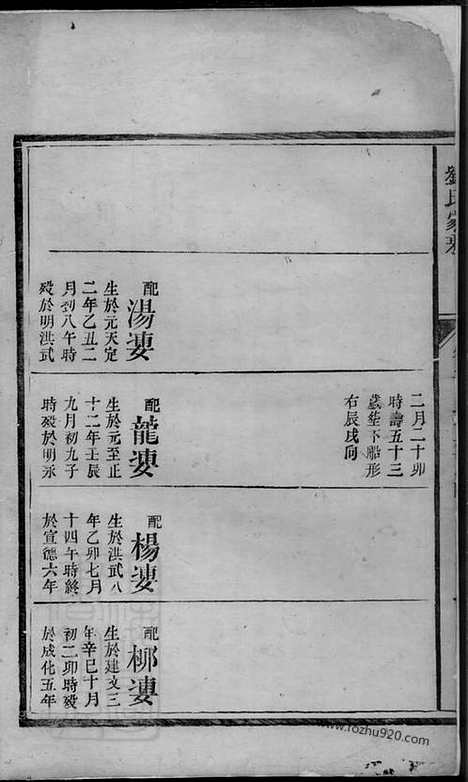 劉氏家
二月二十卯
時壽五十三
歲塟下船形
右辰戌向
配
湯婆
生於元天定
二年乙丑二
月初八午時
歿於明洪武
配
龍婆
生於元至正
十二年壬辰
九月初九子
時歿於明永
配
楊婆
生於洪武八
年乙卯七月
十四午時終
於宣德六年
配
柳婆
生於建文三
年辛巳十月
初二卯時歿
於成化五年
www.fozhu920.com